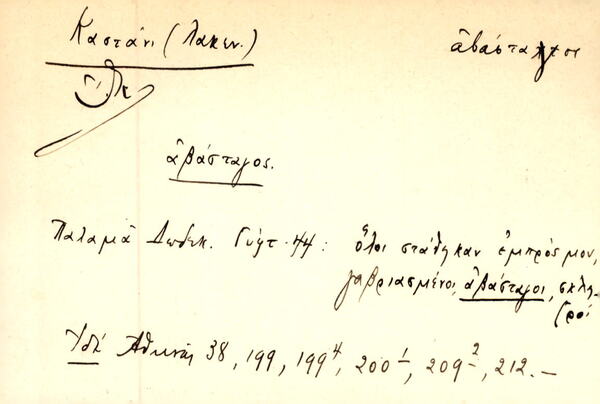 Καστάνι (Λακεν.)
ἀβάσταγος
ἀβάσταγος.
Παλαμᾶ Δωδεκ. Γύφτ. 44 : ὅλοι στάθηκαν ἐμπρός μου,
γαβριασμένοι, ἀβάσταγοι, σκλη-
ροί
Ἀθηνᾶς 38, 199, 199⁴, 200¹, 209², 212. —